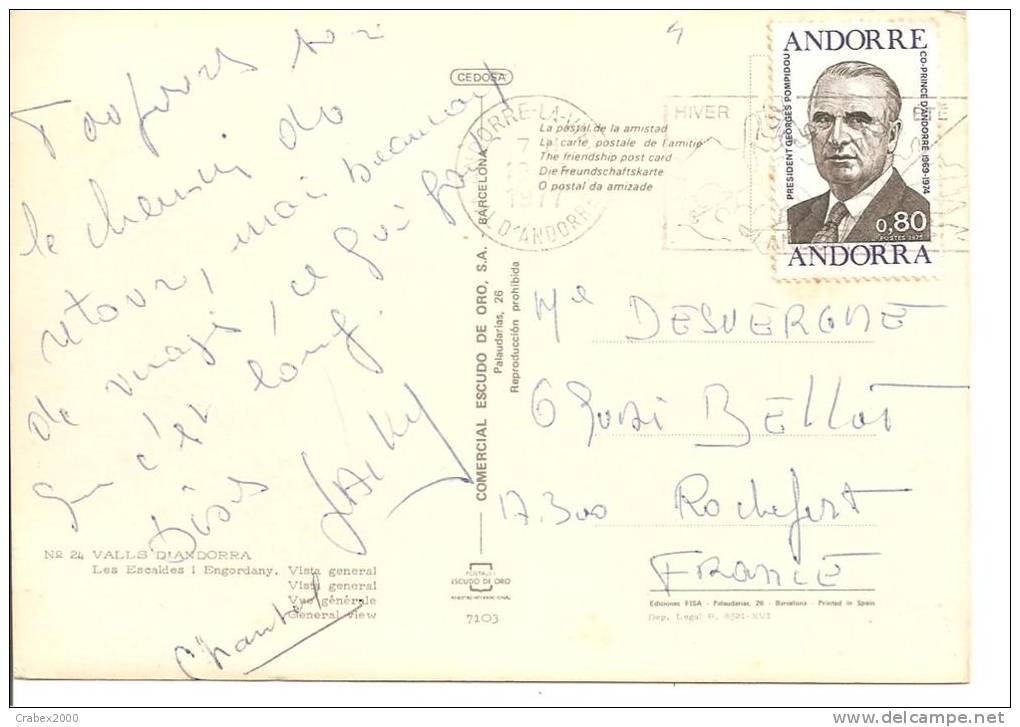 Toujours sur
le chemin du
retour, mais beaucoup
de virages, ce qui fait
que c'est long.
Bises
JACKY
Chantal
Nº 24 VALLS D'ANDORRA
Les Escaldes i Engordany. Vista general
Vista general
Vue générale
General view
CEDOSA
COMERCIAL ESCUDO DE ORO, S.A. BARCELONA
Palaudarias, 26
Reproducción prohibida
POSTALES
ESCUDO DE ORO
7103
La postal de la amistad
La carte postale de l'amitié
The friendship post card
Die Freundschaftskarte
O postal da amizade
ANDORRE-LA-VIEILLE
1977
VAL D'ANDORRE
HIVER
ETE
ANDORRE
PRESIDENT GEORGES POMPIDOU
CO-PRINCE D'ANDORRE 1969-1974
0,80
POSTES 1975
ANDORRA
Me DESVERGNE
6 Quai BELLOT
17.300 Rochefort
FRANCE
Ediciones FISA - Palaudarias, 26 - Barcelona - Printed in Spain
Dep. Legal B. 8321-XVI
Crabex2000
www.delcampe.net